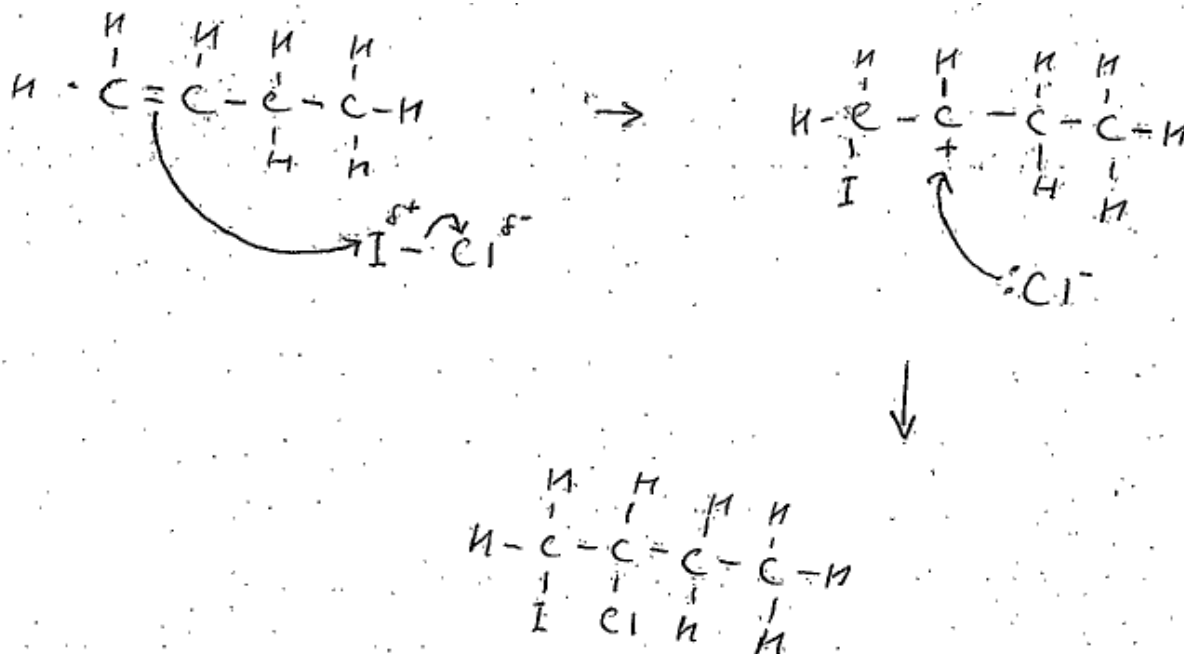 H H H H
H · C = C - C - C - H
H H
I δ+ - Cl δ-
→
H H H H
H - C - C - C - C - H
I + H H
:Cl-
↓
H H H H
H - C - C - C - C - H
I Cl H H